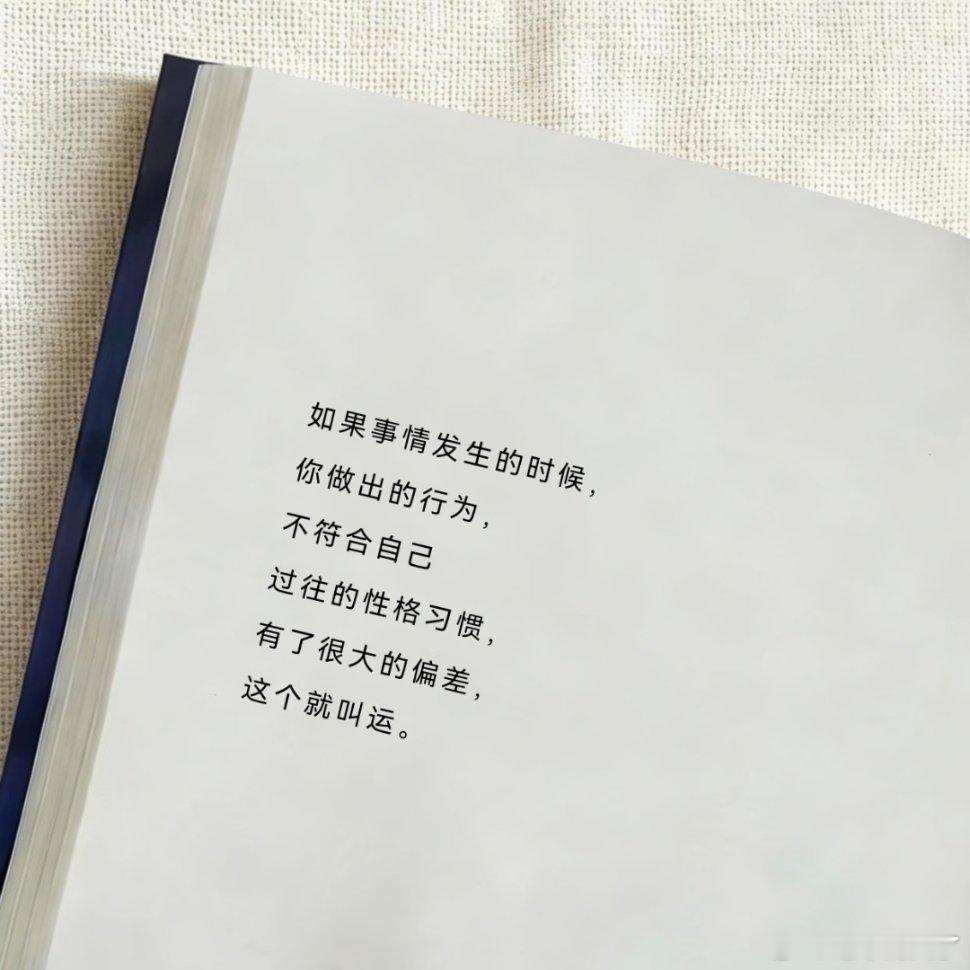 如果事情发生的时候，
你做出的行为，
不符合自己
过往的性格习惯，
有了很大的偏差，
这个就叫运。